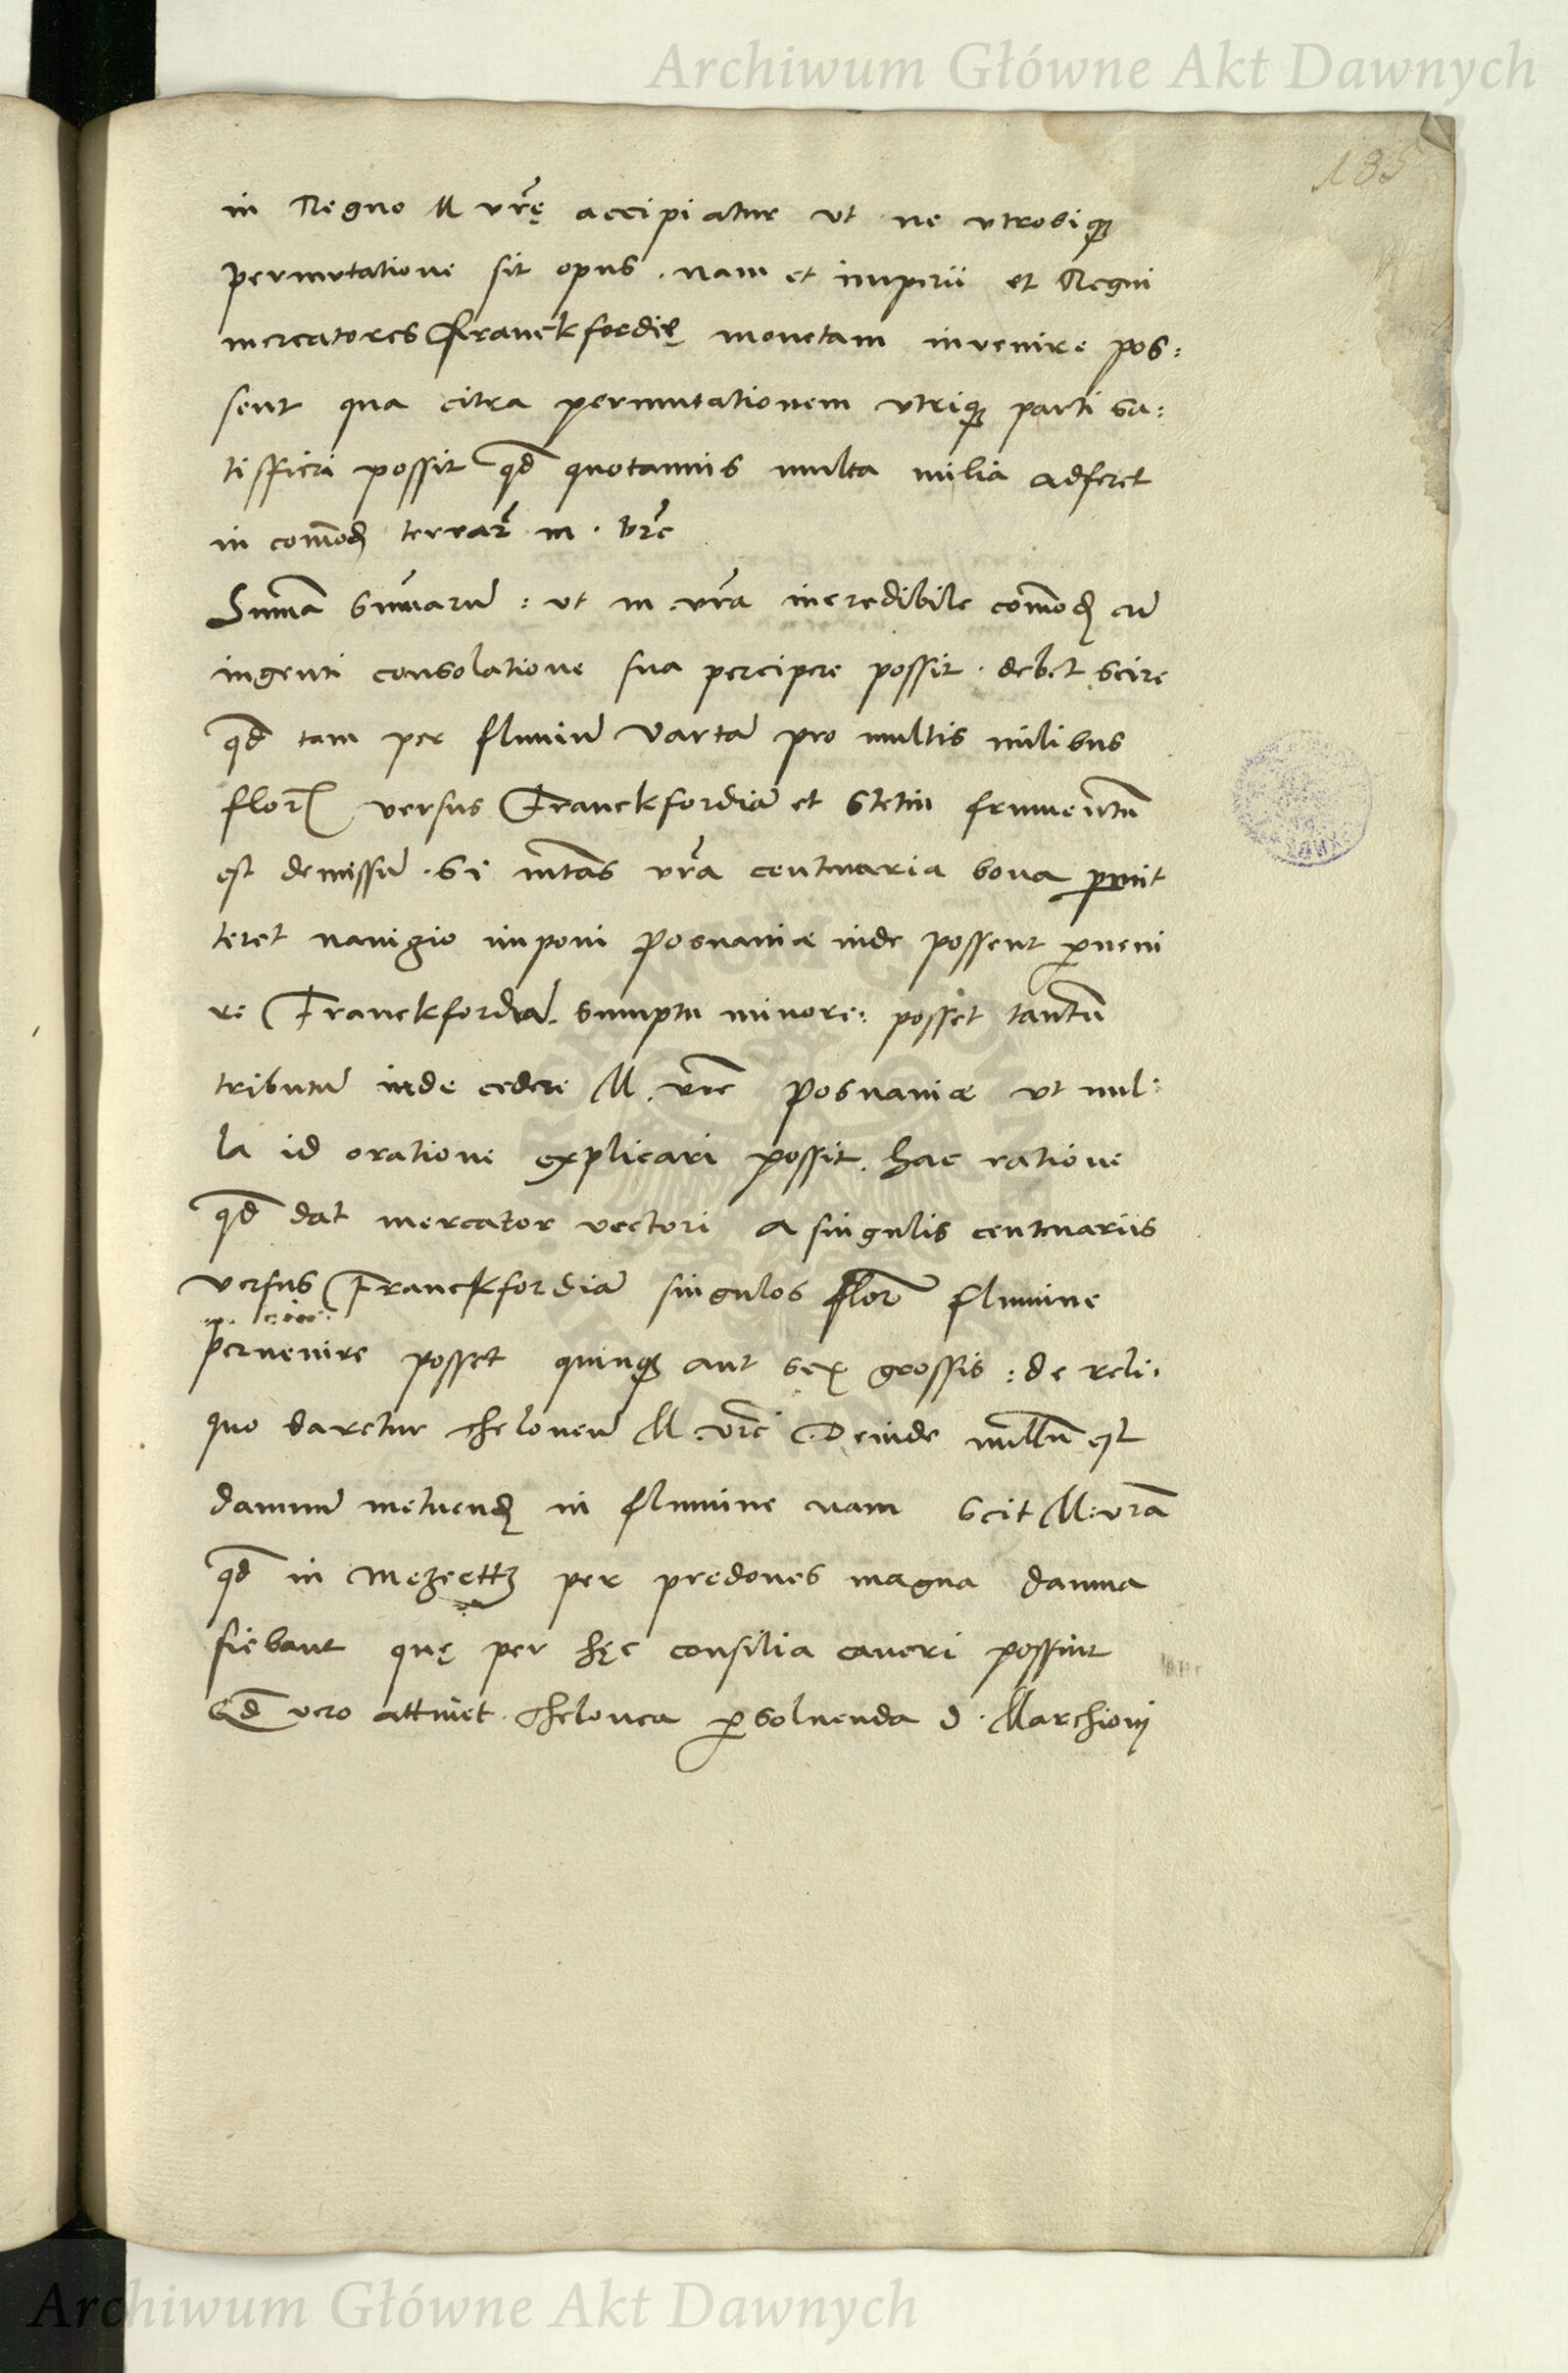 Archiwum Główne Akt Dawnych
185
in Regno M vr̄ę accipiatur ut ne utrobiqꝫ
permutatione sit opus. nam et imperii et Regni
mercatores Franckfordię monetam invenire pos:
sent qua citra permutationem utriqꝫ parti sa:
tisfieri possit qđ quotannis multa milia adferet
in com̄ođ terrar̄ m. vr̄e
Sum̄a sum̄arū : ut m. vr̄a incredibile com̄ođ cū
ingenti consolatione sua percipere possit. debet scire
qđ tam per fluviū Vartā pro multis milibus
flor̄ versus Franckfordiā et Stetin frumentū
est demissū. Si mtās vr̄a centenaria bona pmit
teret navigio imponi Posnaniæ inde possent ꝑveni
re Franckfordiā. sumptu minore: posset tantū
tributū inde cedere M. vr̄e Posnaniæ ut nul:
la id oratione explicari possit. hac ratione
qđ dat mercator vectori a singulis centenariis
versus Franckfordiā singulos flor̄ flumine
pervenire posset quinqꝫ aut sex grossis : de reli:
quo daretur theloneū M. vr̄e Deinde nullū est
damnū metuenđ in flumine nam scit M: vrā
qđ in Mezecttz per predones magna damna
fiebant quę per hęc consilia caveri possint
Qđ vero attinet. thelonea ꝑsolvenda D. Marchioni
Archiwum Główne Akt Dawnych